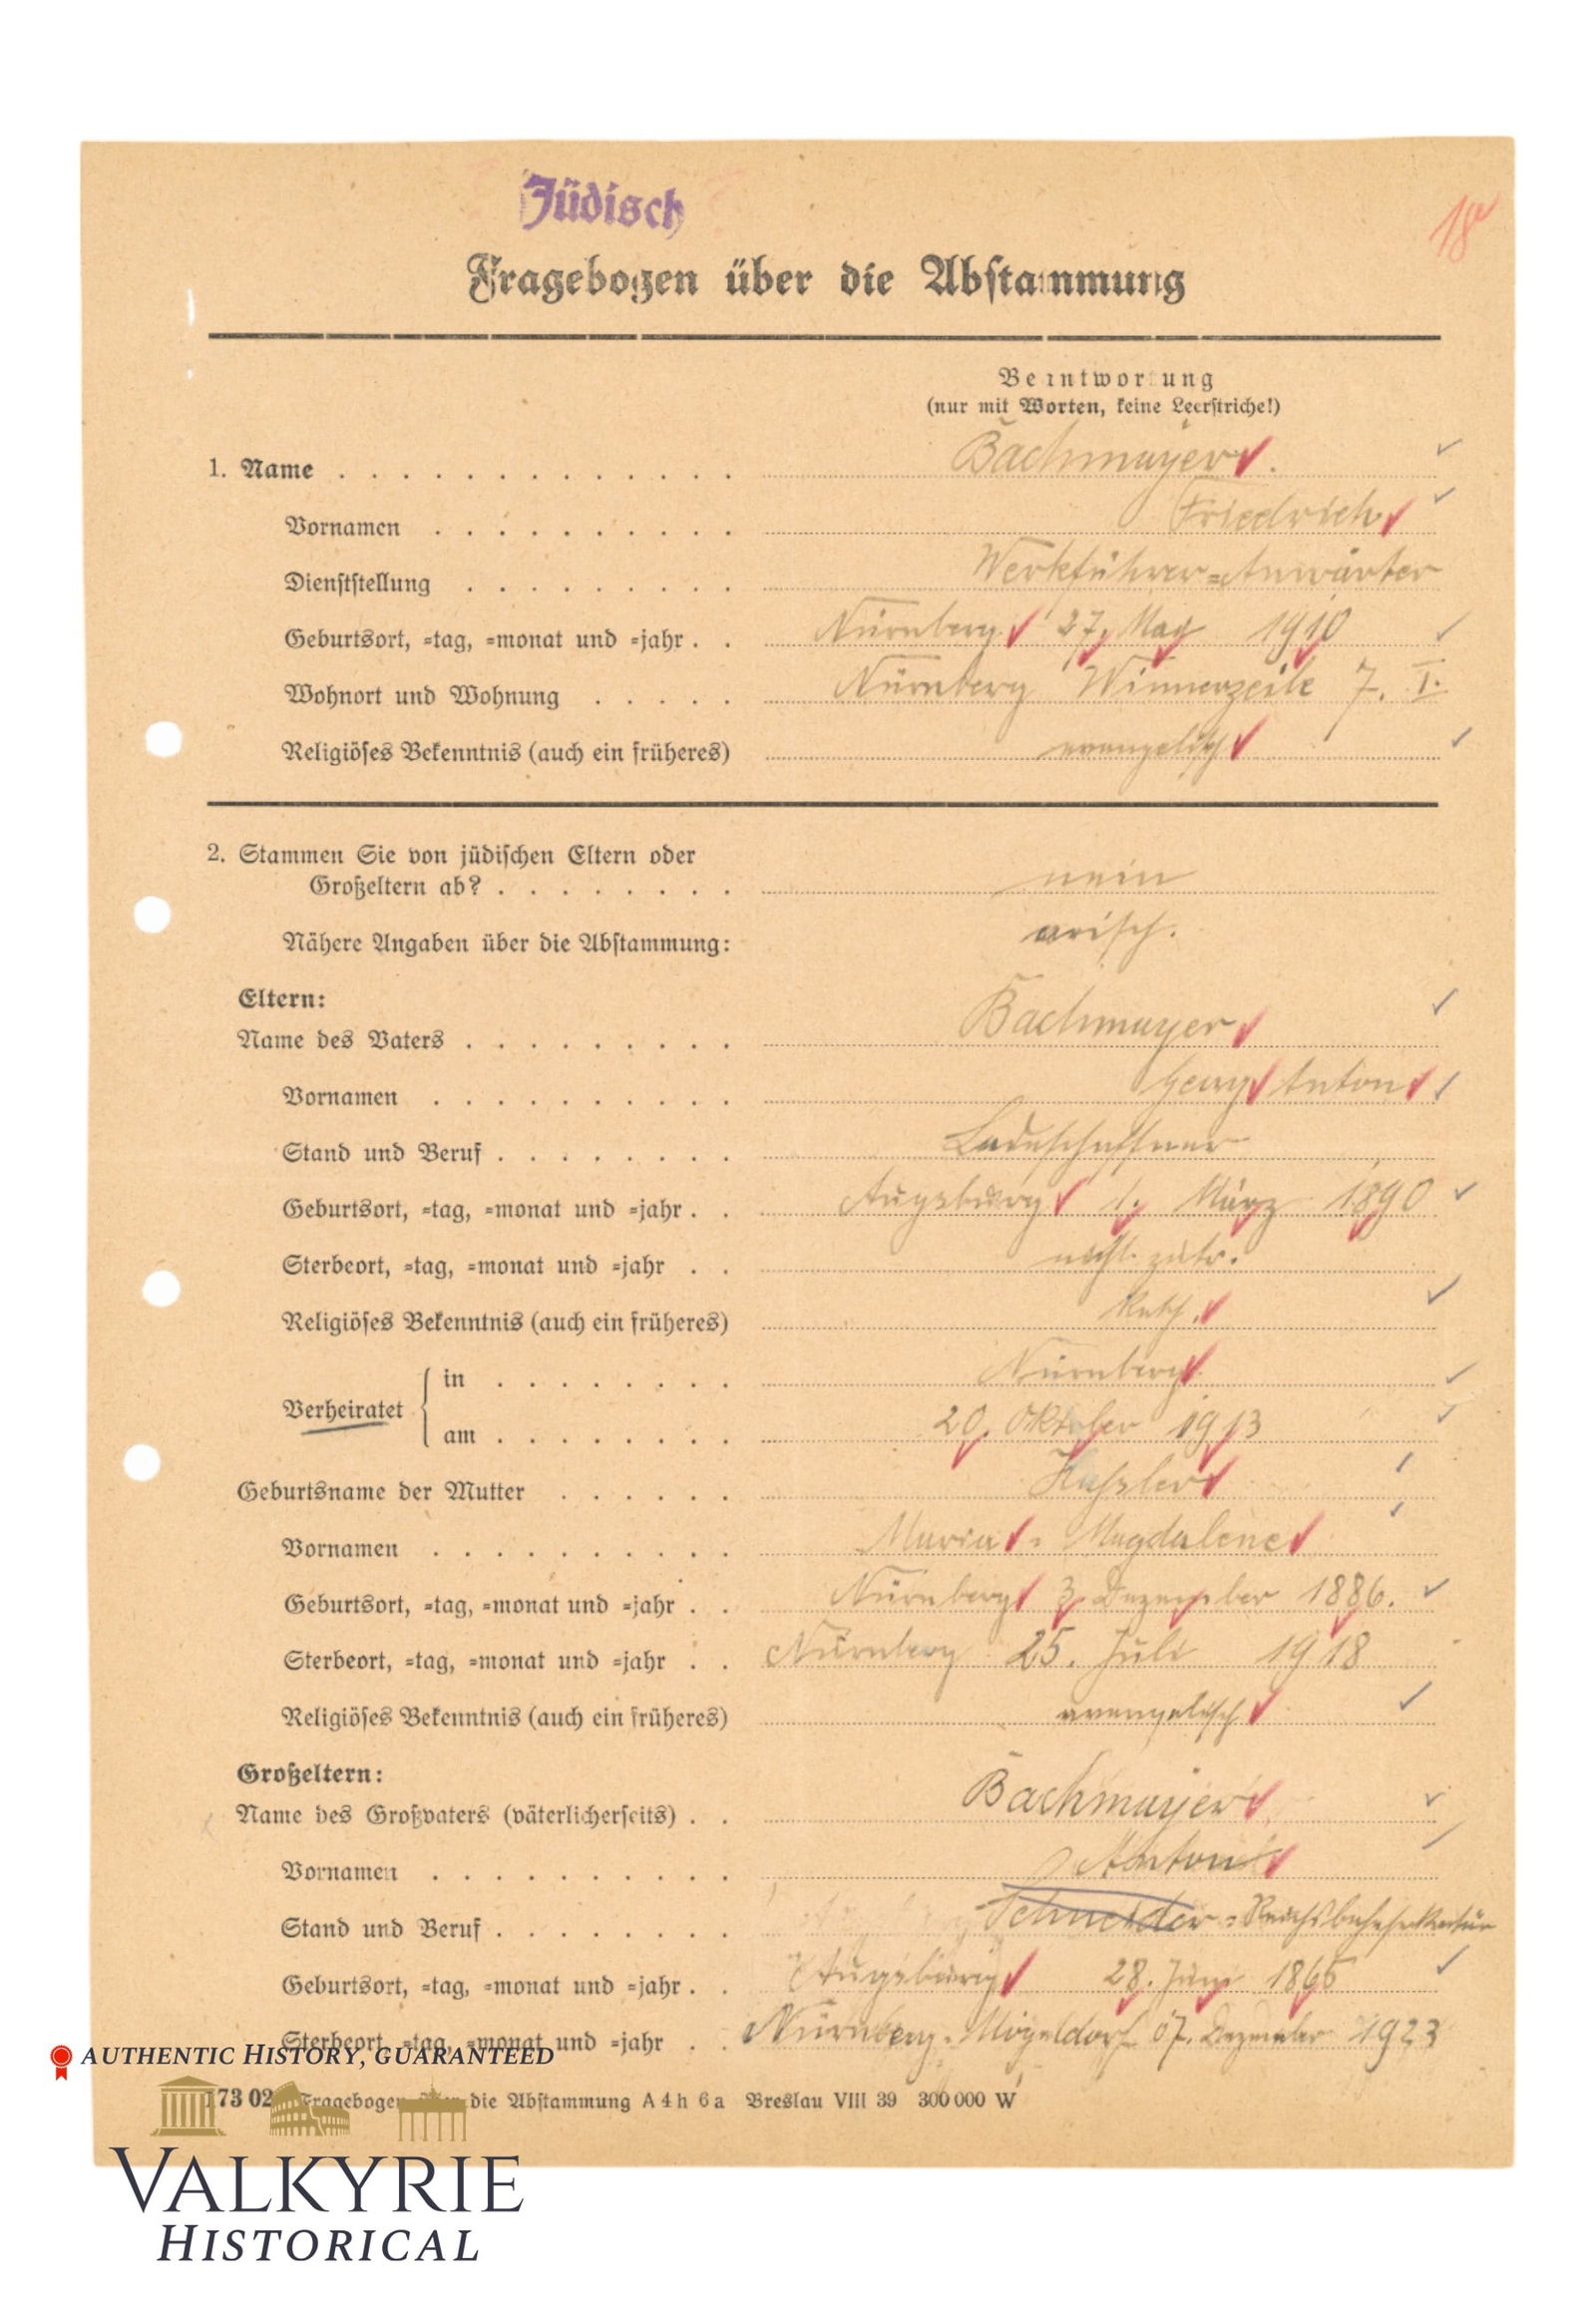 Jüdisch
18
Fragebogen über die Abstammung
Beantwortung
(nur mit Worten, keine Leerstriche!)
1. Name . . . Bachmayer.
Vornamen . . . Friedrich
Dienststellung . . . Werkführer=Anwärter
Geburtsort, =tag, =monat und =jahr . . Nürnberg 27. May 1910
Wohnort und Wohnung . . . Nürnberg Winnerzeile 7. I.
Religiöses Bekenntnis (auch ein früheres) evangelisch
2. Stammen Sie von jüdischen Eltern oder
Großeltern ab? . . . nein
Nähere Angaben über die Abstammung: arisch.
Eltern:
Name des Vaters . . . Bachmayer
Vornamen . . . Georg Anton
Stand und Beruf . . . Ladeschaffner
Geburtsort, =tag, =monat und =jahr . . Augsburg 1. März 1890
Sterbeort, =tag, =monat und =jahr . . nicht zutr.
Religiöses Bekenntnis (auch ein früheres) kath.
Verheiratet
in . . . Nürnberg
am . . . 20. Oktober 1913
Geburtsname der Mutter . . .
Vornamen . . . Maria = Magdalene
Geburtsort, =tag, =monat und =jahr . . Nürnberg 3. Dezember 1886.
Sterbeort, =tag, =monat und =jahr . . Nürnberg 25. Juli 1918
Religiöses Bekenntnis (auch ein früheres) evangelisch
Großeltern:
Name des Großvaters (väterlicherseits) . . Bachmayer
Vornamen . . . Anton
Stand und Beruf . . . Schneider =
Geburtsort, =tag, =monat und =jahr . . Augsburg 28. Juni
Sterbeort, =tag, =monat und =jahr . . Nürnberg-Mögeldorf 07. Dezember 1923
AUTHENTIC HISTORY, GUARANTEED
173 02 Fragebogen über die Abstammung A 4 h 6 a Breslau VIII 39 300 000 W
VALKYRIE
HISTORICAL